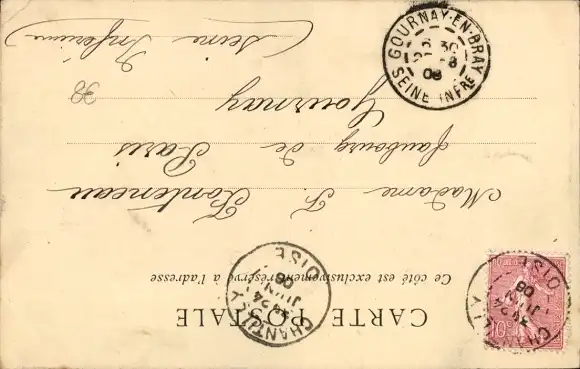 CARTE POSTALE
Ce côté est exclusivement réservé à l'adresse
Madame F.
faubourg de Paris
Gournay
(Seine Inférieure)
38
CHANTILLY
24
JUIN
08
OISE
CHANTILLY
24
JUIN
08
OISE
10
GOURNAY-EN-BRAY
30
08
SEINE INFRE